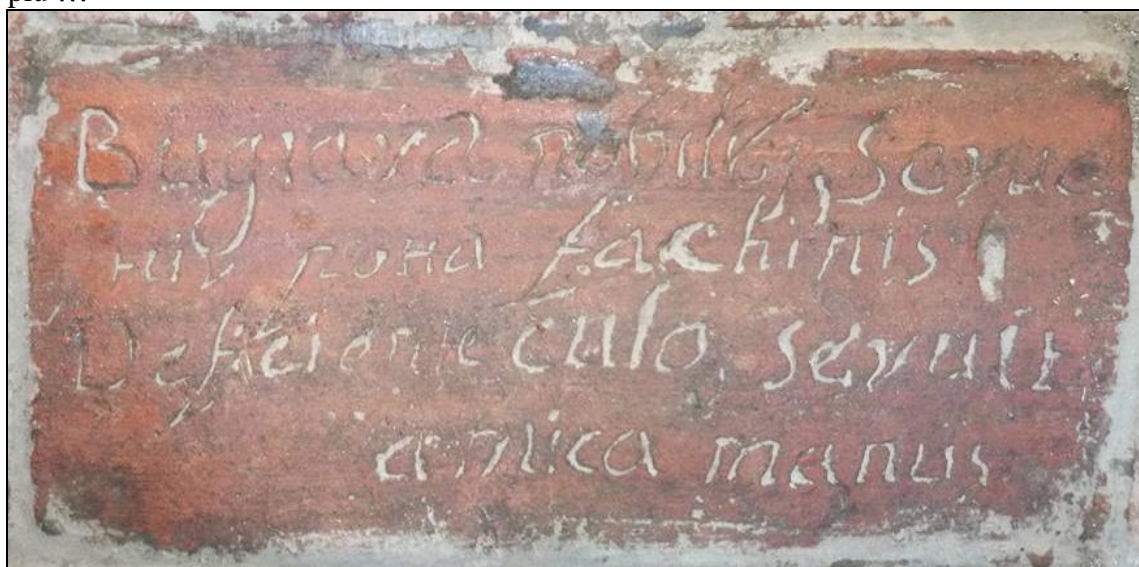 Bugiara nobilib, Serue
fachinis
Deficiente culo, seruit
amica manus